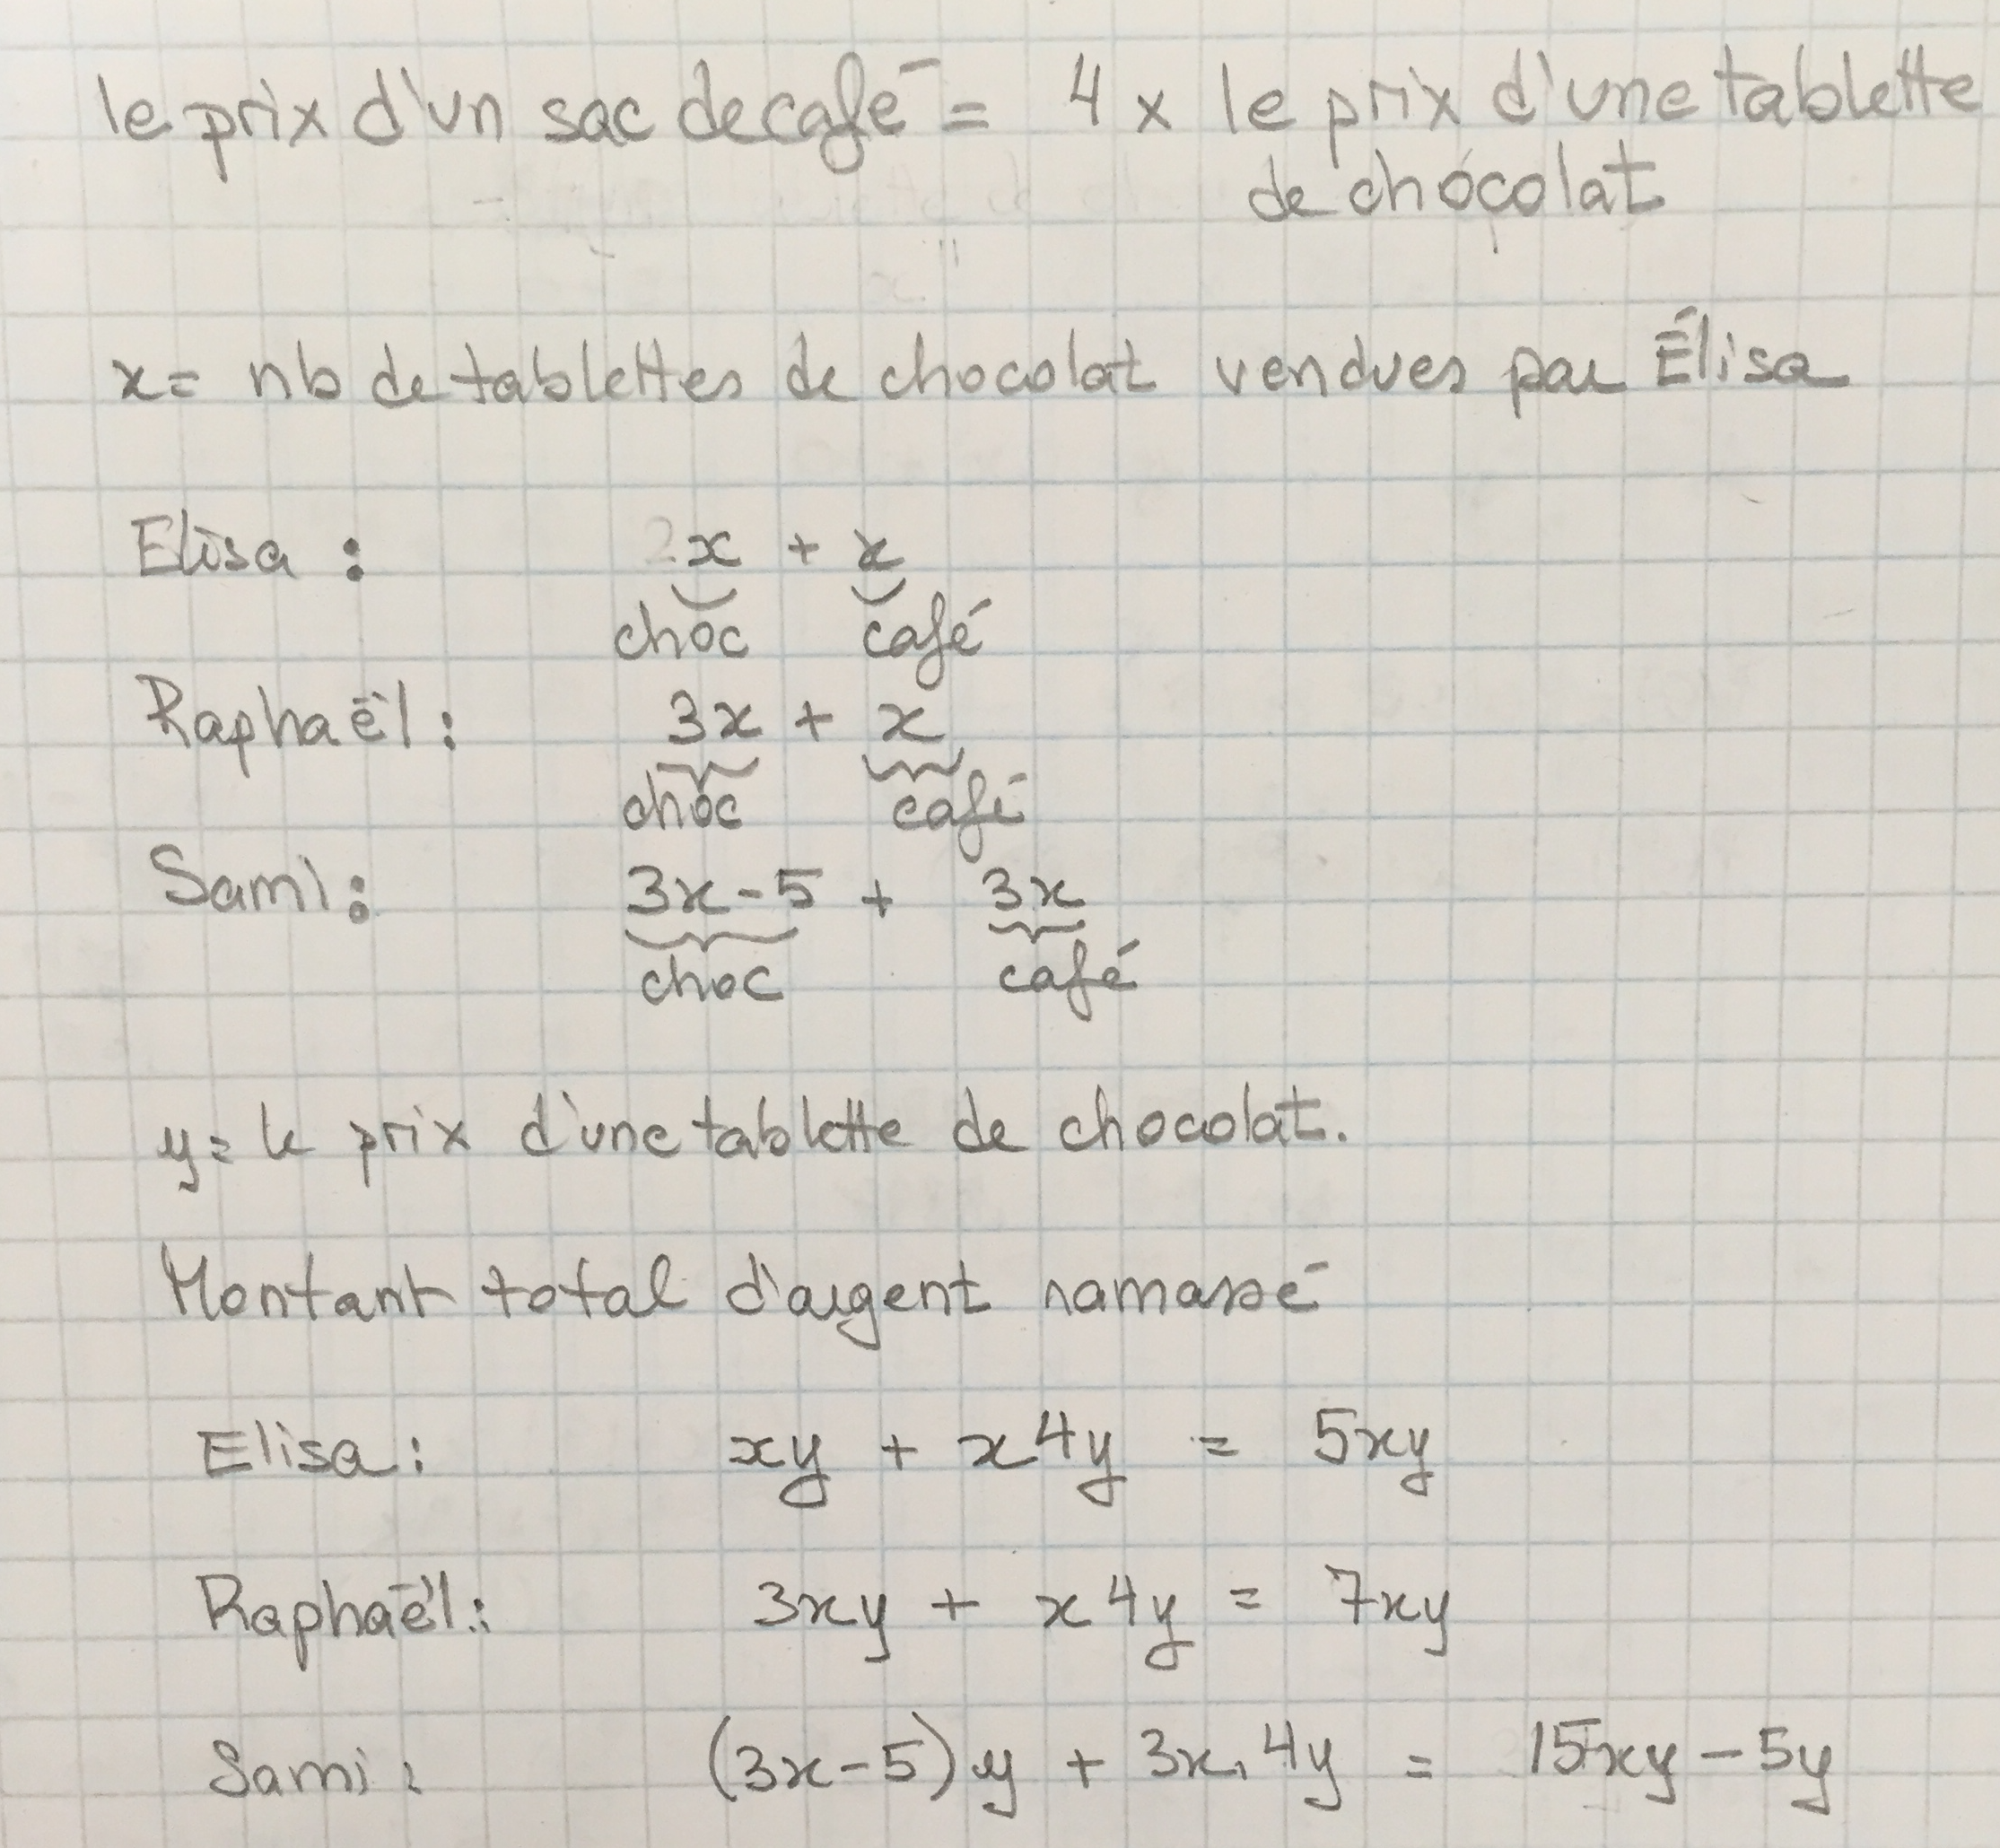 le prix d'un sac de café = 4 x le prix d'une tablette
de chocolat
x = nb de tablettes de chocolat vendues par Élisa
Elisa : x + x
choc café
Raphaël : 3x + x
choc café
Sami : 3x - 5 + 3x
choc café
y = le prix d'une tablette de chocolat.
Montant total d'argent ramassé
Elisa : xy + x4y = 5xy
Raphaël : 3xy + x4y = 7xy
Sami : (3x-5)y + 3x.4y = 15xy - 5y